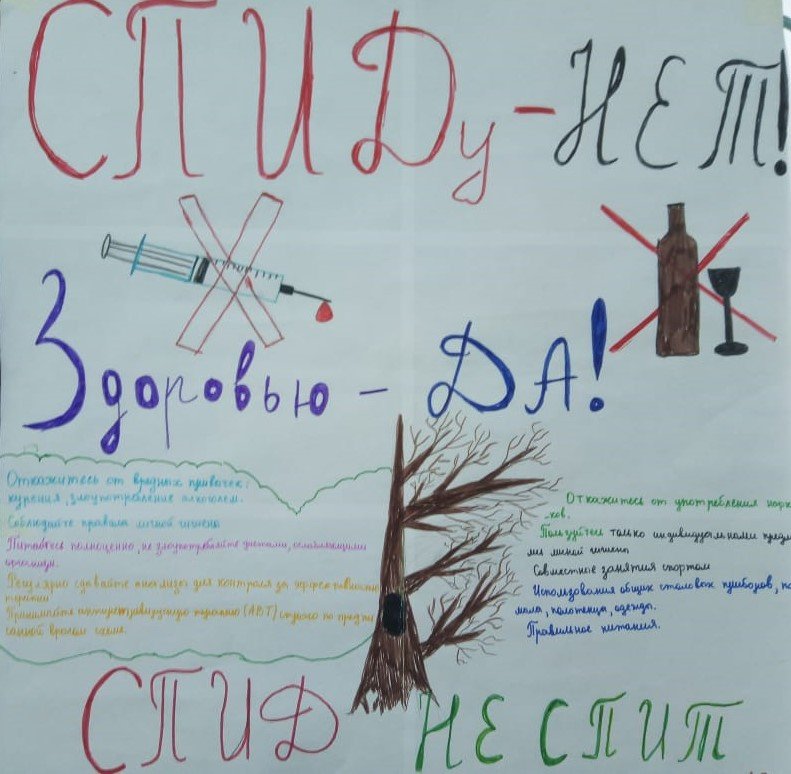 СПИДу-НЕТ!
Здоровью - ДА!
Откажитесь от вредных привычек:
курения, злоупотребление алкоголем.
Соблюдайте правила личной гигиены
Питайтесь полноценно, не злоупотребляйте диетами, ослабляющими
организм.
Регулярно сдавайте анализы для контроля за эффективностью
терапии
Принимайте антиретровирусную терапию (АРТ) строго по
врачом схеме.
Откажитесь от употребления нарк
-ков.
Пользуйтесь только индивидуальными предме
ми личной гигиены
Совместные занятия спортом
Использования общих столовых приборов, по
мыла, полотенца, одежды.
Правильное питания.
СПИД НЕ СПИТ